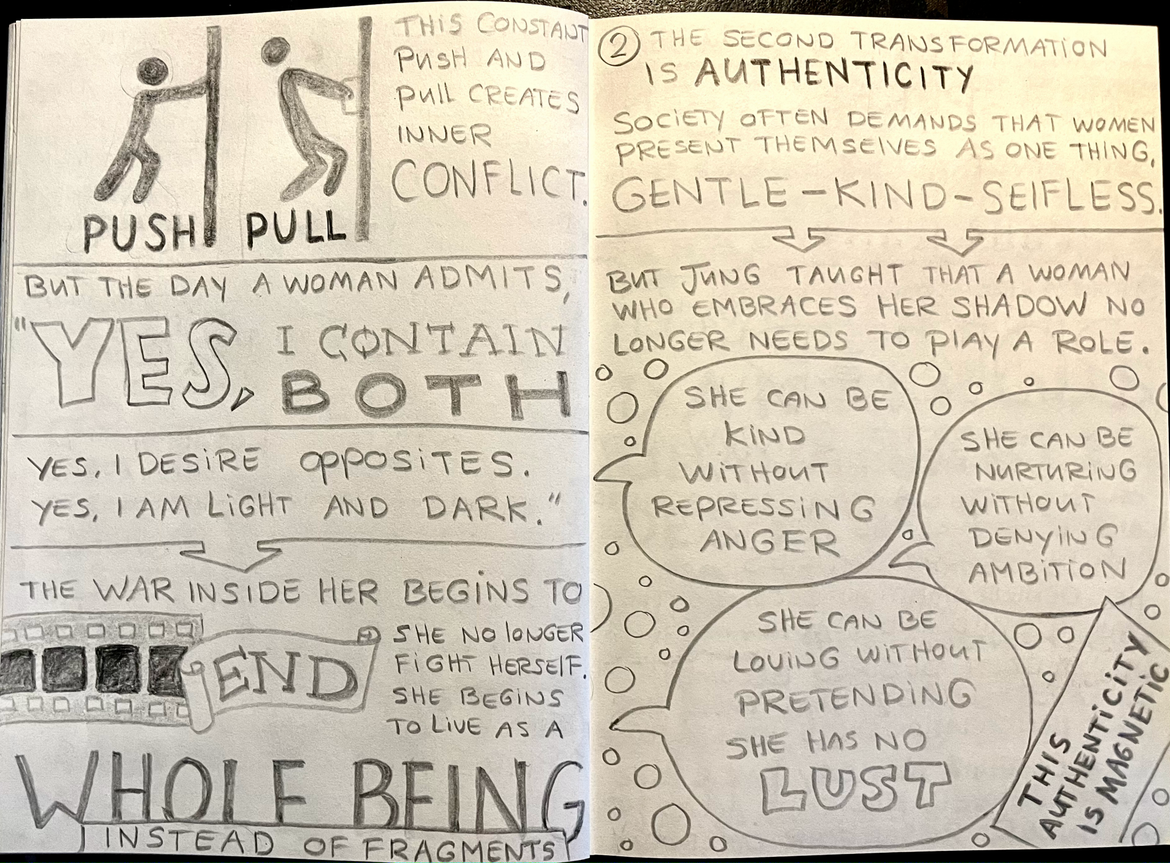 THIS CONSTANT
PUSH AND
PULL CREATES
INNER
CONFLICT.
PUSH PULL
BUT THE DAY A WOMAN ADMITS,
"YES, I CONTAIN
BOTH
YES, I DESIRE OPPOSITES.
YES, I AM LIGHT AND DARK."
THE WAR INSIDE HER BEGINS TO
END
SHE NO LONGER
FIGHT HERSELF.
SHE BEGINS
TO LIVE AS A
WHOLE BEING
INSTEAD OF FRAGMENTS
② THE SECOND TRANSFORMATION
IS AUTHENTICITY
SOCIETY OFTEN DEMANDS THAT WOMEN
PRESENT THEMSELVES AS ONE THING,
GENTLE – KIND – SELFLESS.
BUT JUNG TAUGHT THAT A WOMAN
WHO EMBRACES HER SHADOW NO
LONGER NEEDS TO PLAY A ROLE.
SHE CAN BE
KIND
WITHOUT
REPRESSING
ANGER
SHE CAN BE
NURTURING
WITHOUT
DENYING
AMBITION
SHE CAN BE
LOVING WITHOUT
PRETENDING
SHE HAS NO
LUST
THIS
AUTHENTICITY
IS MAGNETIC